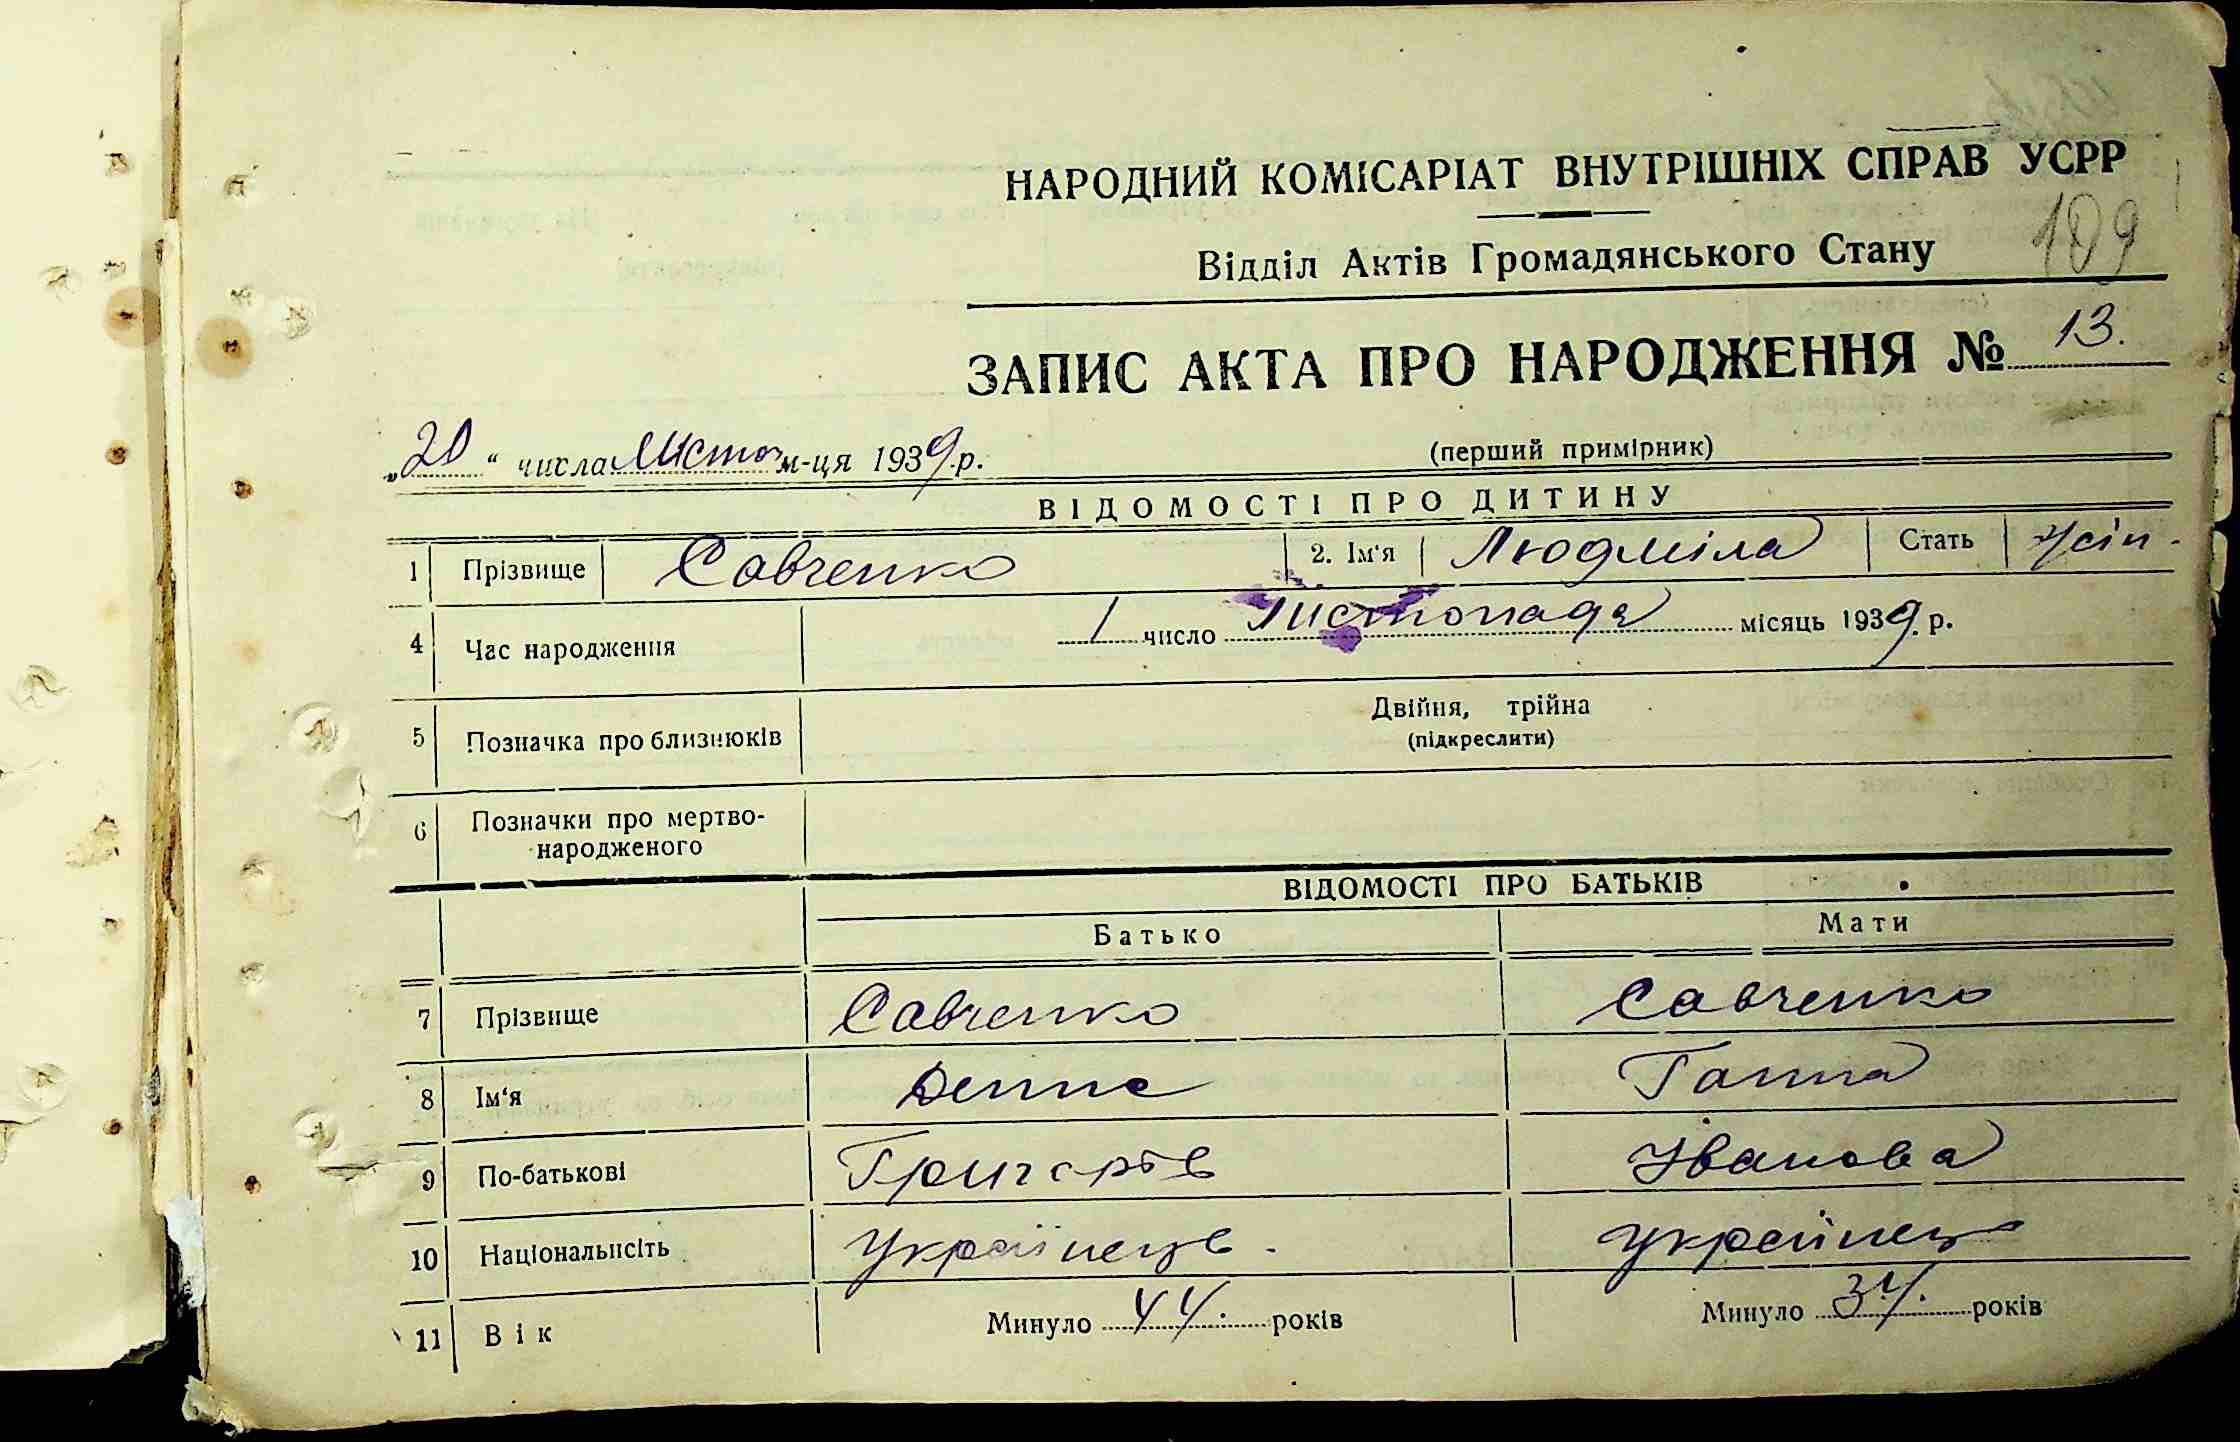 НАРОДНИЙ КОМІСАРІАТ ВНУТРІШНІХ СПРАВ УСРР
109
Відділ Актів Громадянського Стану
ЗАПИС АКТА ПРО НАРОДЖЕННЯ № 13.
„20“ числа Листоп м-ця 1939 р.
(перший примірник)
ВІДОМОСТІ ПРО ДИТИНУ
1 Прізвище Савченко 2. Ім'я Людміла Стать
4 Час народження 1 число Листопада місяць 1939 р.
5 Позначка про близнюків Двійня, трійна
(підкреслити)
6 Позначки про мертво-
народженого
ВІДОМОСТІ ПРО БАТЬКІВ
Батько Мати
7 Прізвище Савченко Савченко
8 Ім'я Денис Ганна
9 По-батькові Григорів Іванова
10 Національність Українець. Українець
11 Вік Минуло 44. років Минуло 34. років